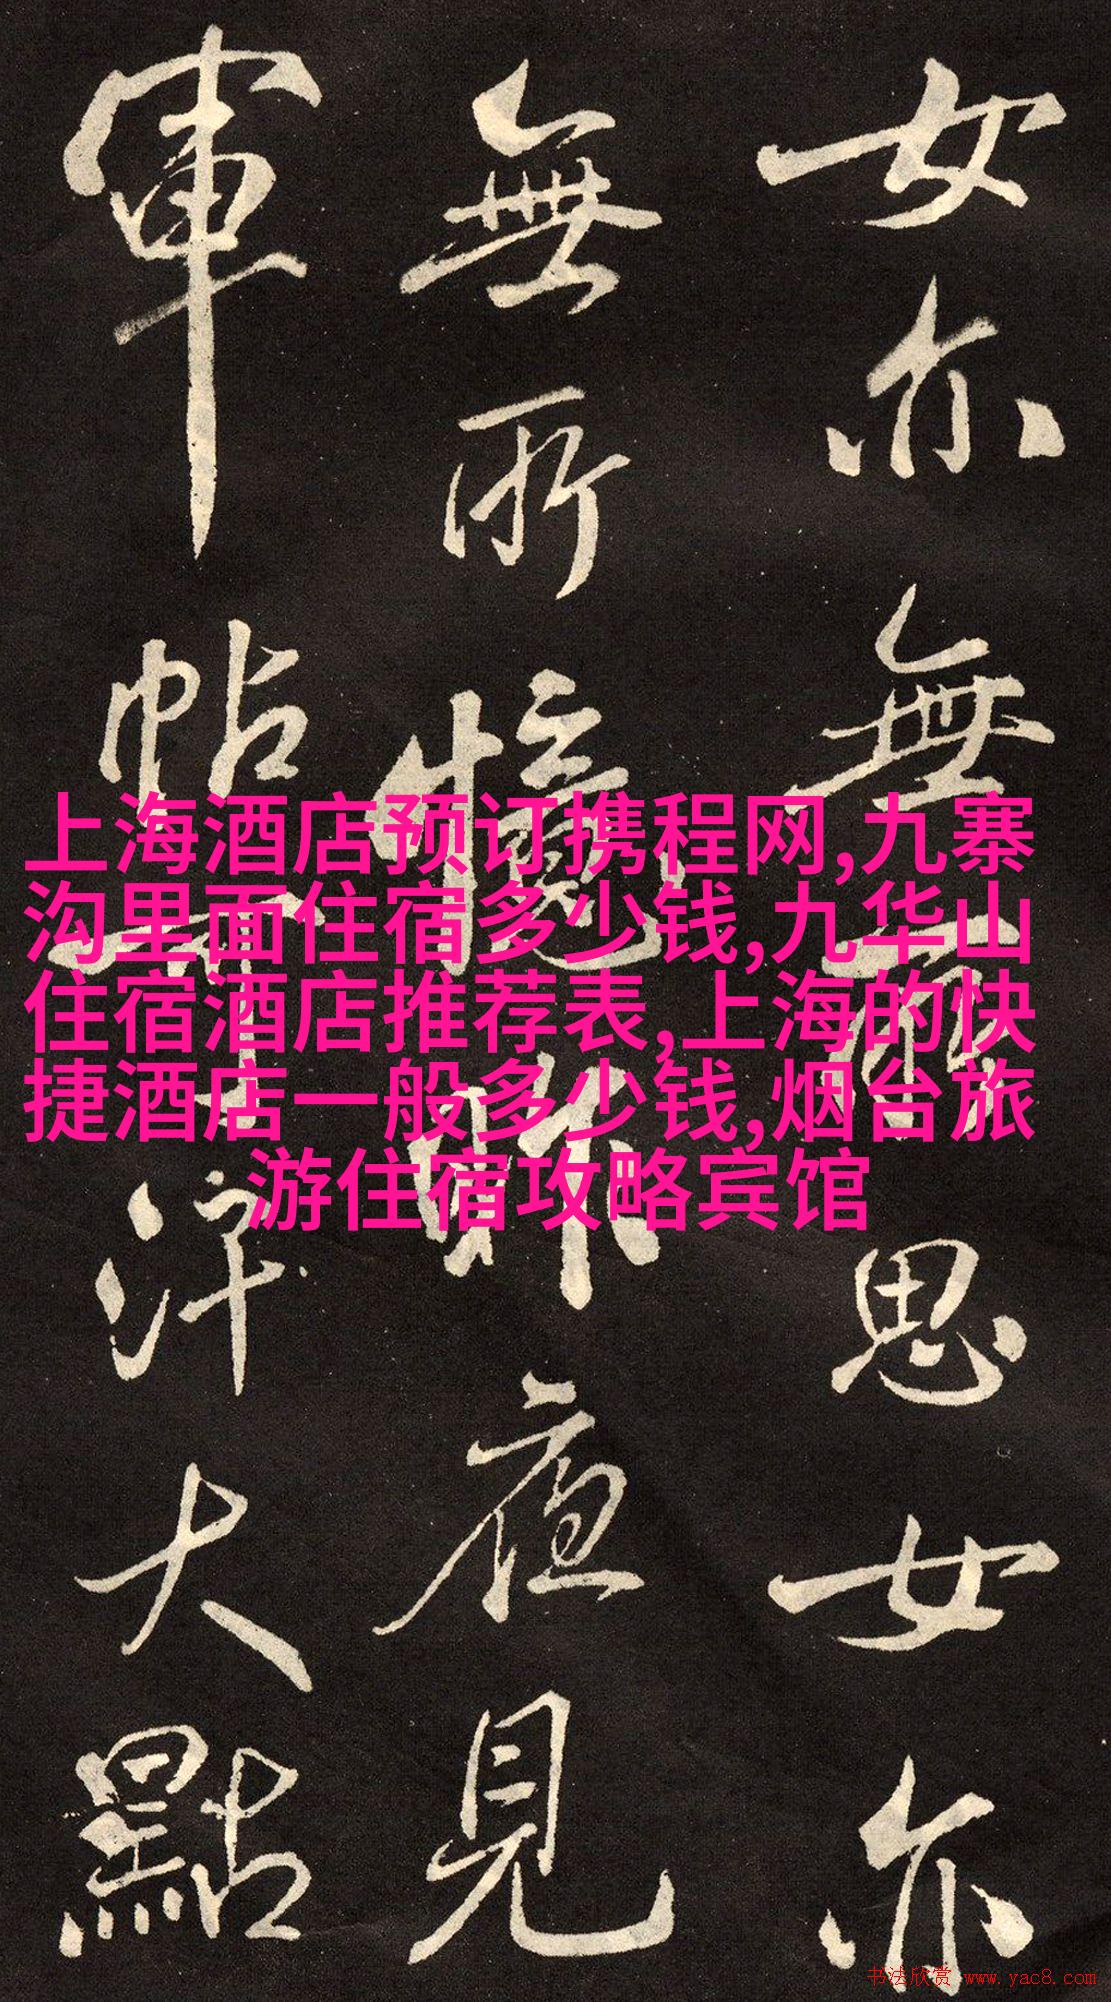 女亦無所思女亦
無所憶昨夜見
軍帖可汗大點
上海酒店预订携程网,九寨
沟里面住宿多少钱,九华山
住宿酒店推荐表,上海的快
捷酒店一般多少钱,烟台旅
游住宿攻略宾馆
书法欣赏 www.yac8.com